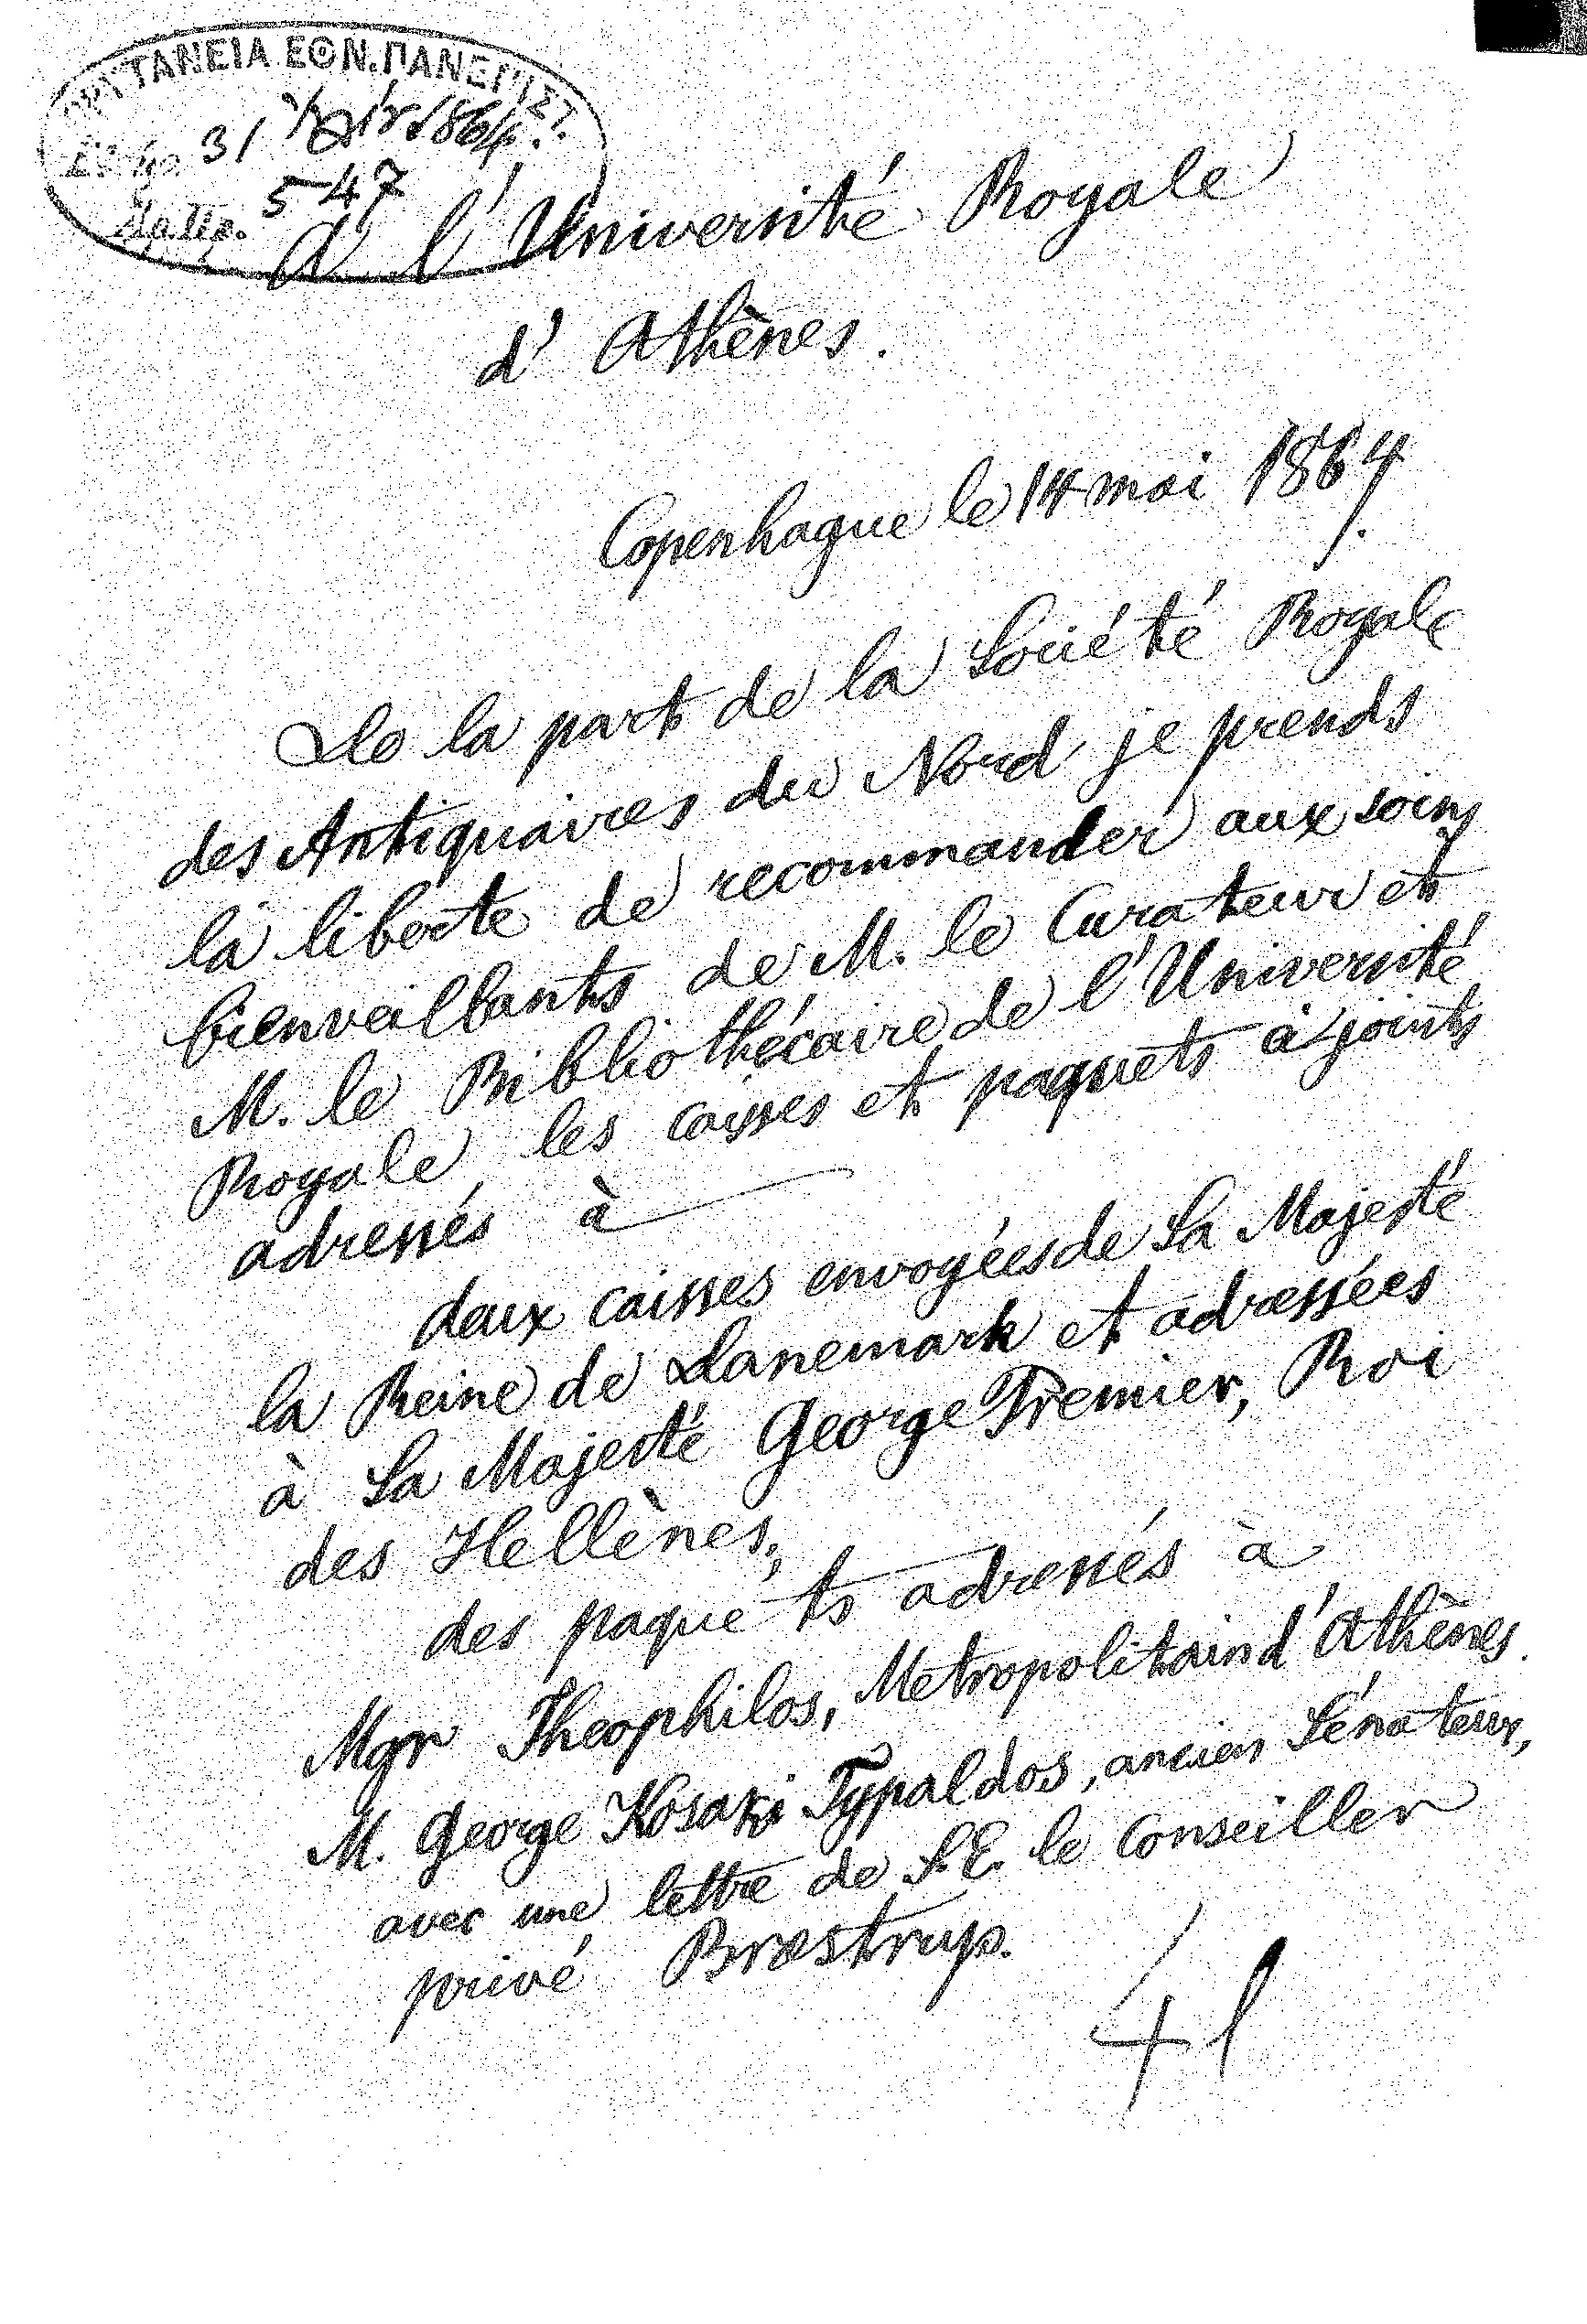 ΠΡΥΤΑΝΕΙΑ ΕΘΝ. ΠΑΝΕΠΙΣΤ.
31 1864.
547
A l'Université Royale
d'Athènes.
Copenhague le 14 mai 1864.
De la part de la Société Royale
des Antiquaires du Nord je prends
la liberté de recommander aux soins
bienveillants de M. le Curateur et
M. le Bibliothécaire de l'Université
Royale les caisses et paquets ajoints
adressés à
deux caisses envoyées de Sa Majesté
la Reine de Danemark et adressées
à Sa Majesté George Premier, Roi
des Hellènes;
des paquets adressés à
Mgr Theophilos, Metropolitain d'Athènes.
M. George Kosaki Typaldos, ancien Sénateur,
avec une lettre de S.E. le Conseiller
privé Bræstrup.